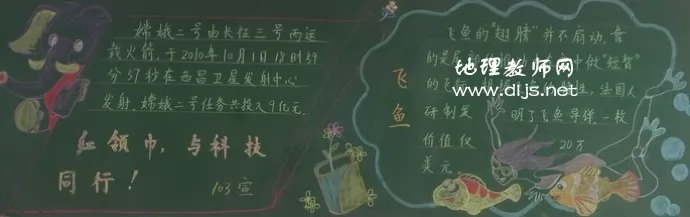 嫦娥二号由长征三号丙运
载火箭,于2010年10月1日18时59
分57秒在西昌卫星发射中心
发射.嫦娥二号任务共投入9亿元.
红领巾,与科技
同行!
103宣
飞鱼
飞鱼的"翅膀"并不扇动,靠
的是尾部
中做"短暂"
的飞
法国人
研制发
明了飞鱼导弹.一枚
价值仅
20万
美元.
地理教师网
www.dljs.net